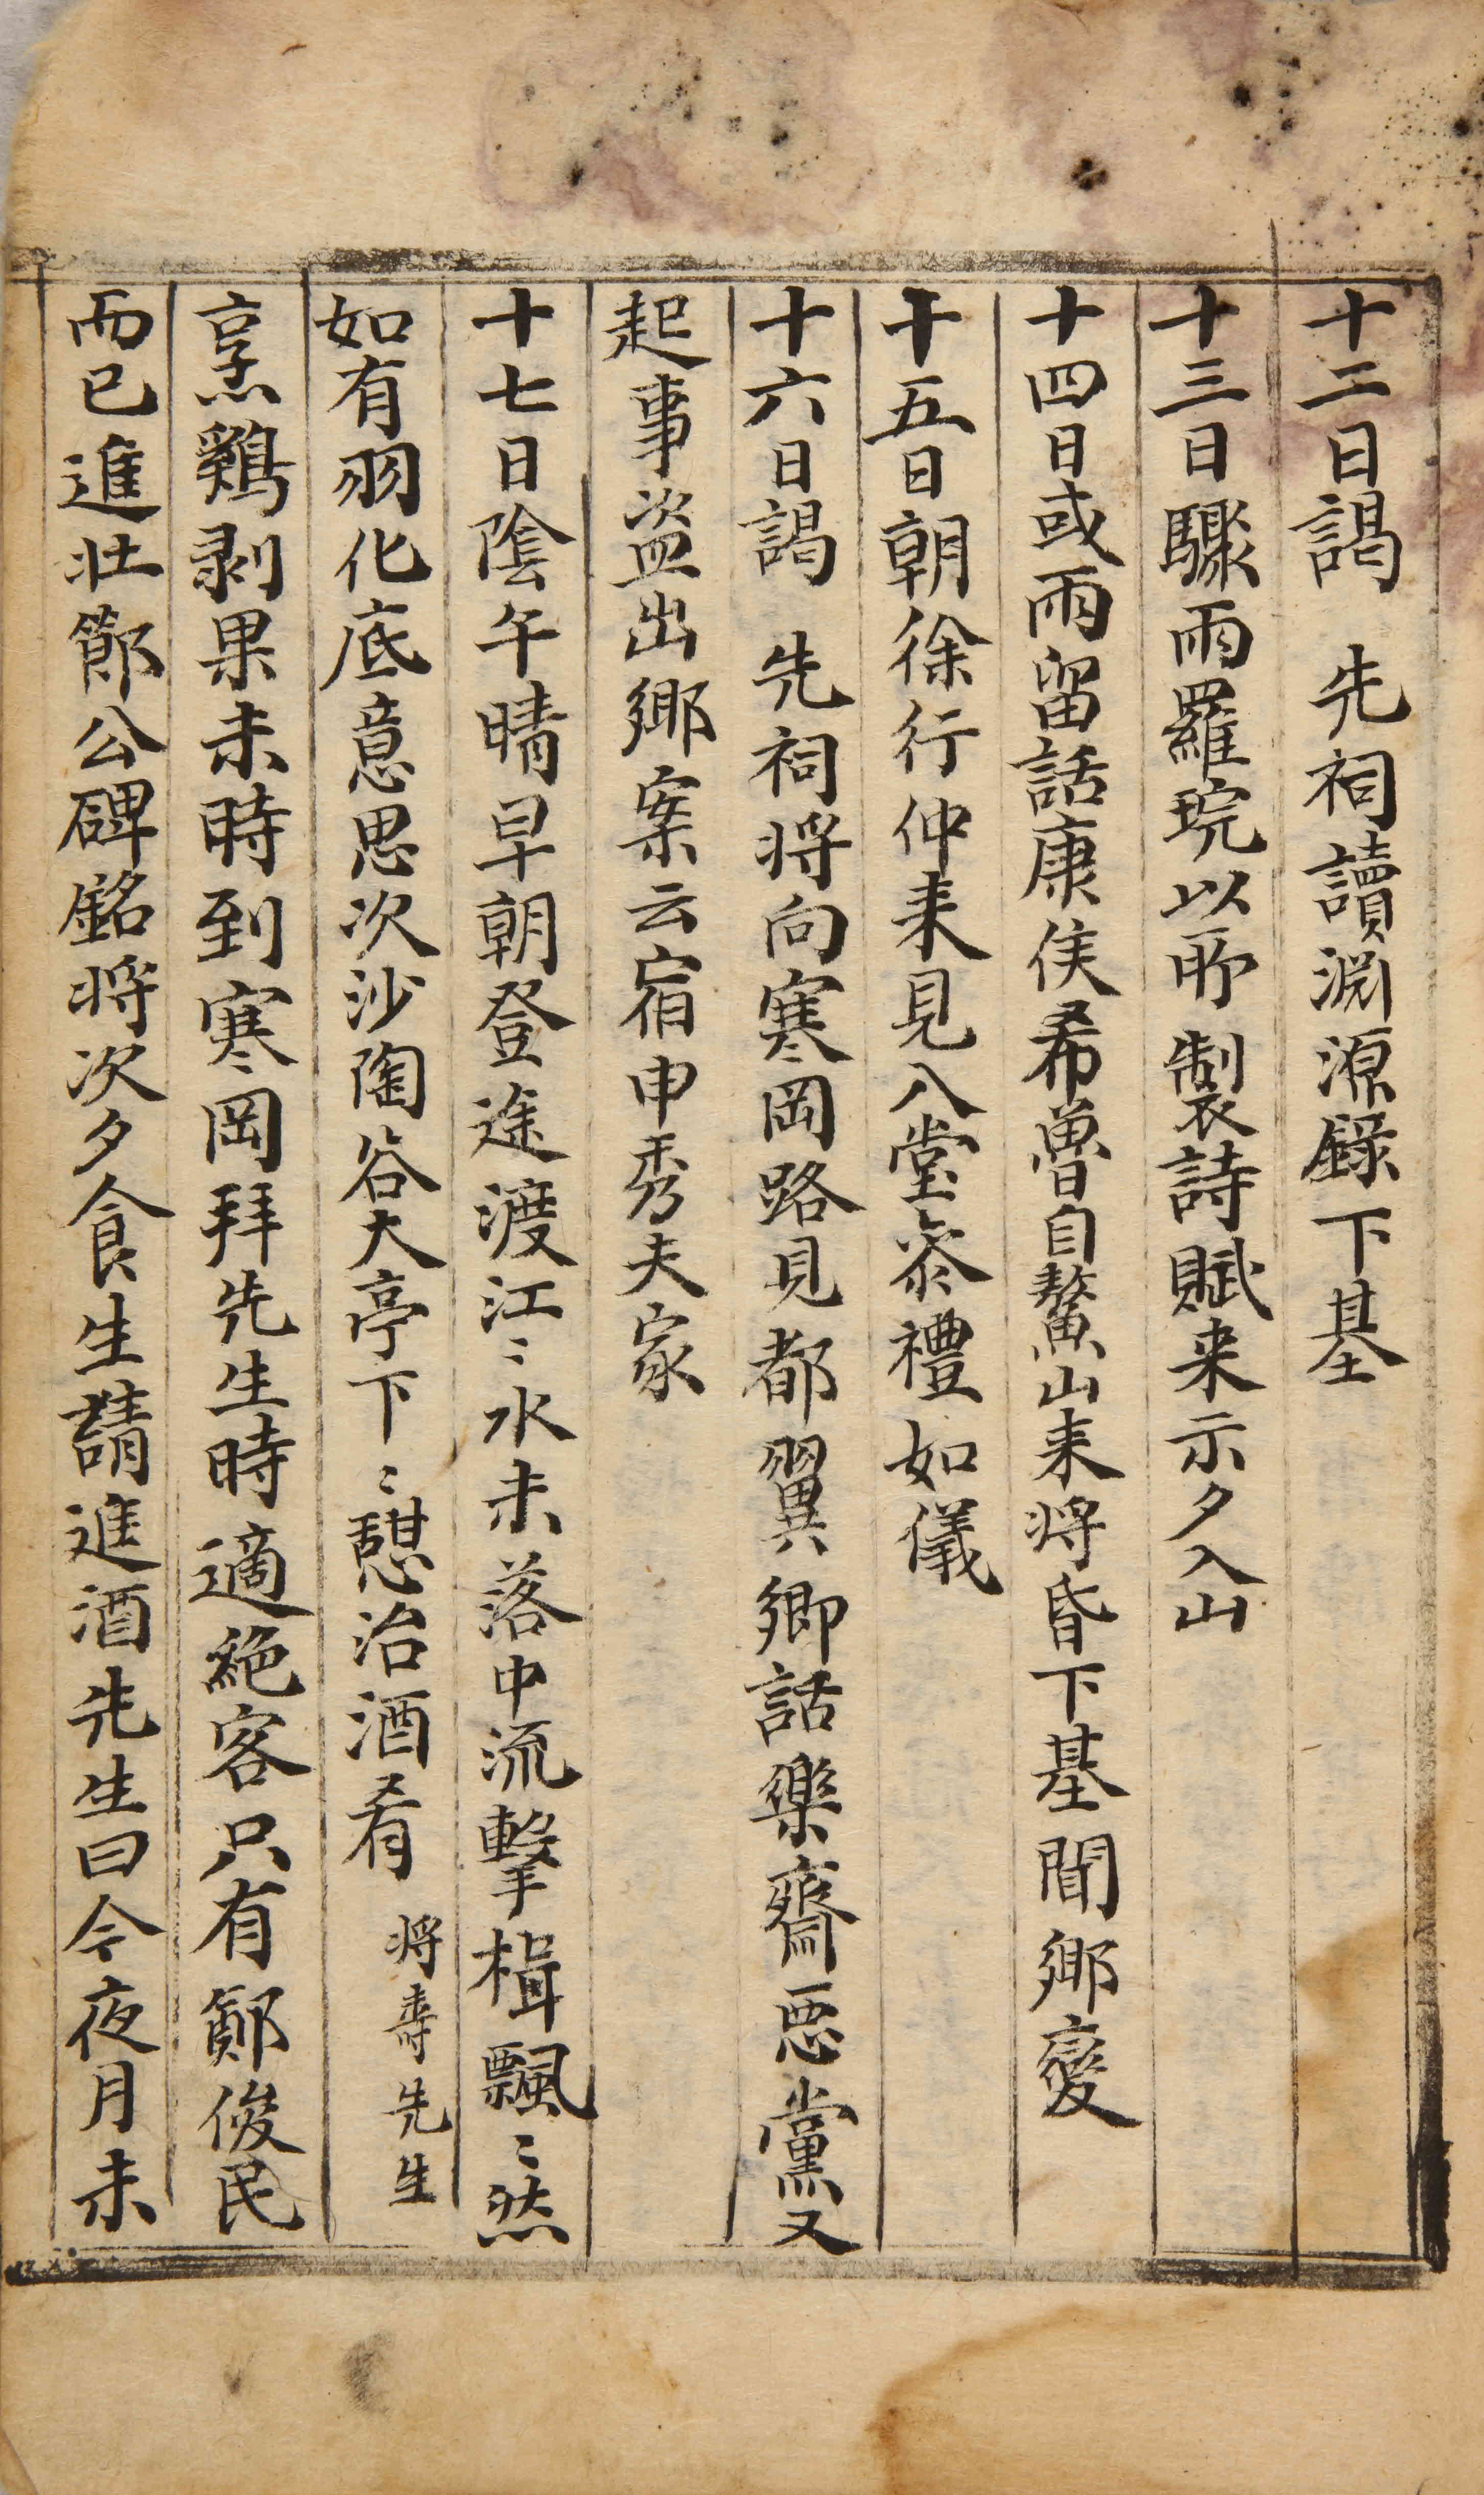 十二日謁　先祠讀淵源錄下基
十三日驟雨羅琓以所製詩賦来示夕入山
十四日或雨留話康侯希曾自鰲山来将昏下基聞鄉變
十五日朝徐行仲来見入堂叅禮如儀
十六日謁　先祠将向寒岡路見都翼卿話樂齋惡黨又
起事盜出鄉案云宿申秀夫家
十七日陰午晴早朝登途渡江〻水未落中流擊楫飄〻然
如有羽化底意思次沙陶谷大亭下〻憇治酒肴将壽先生
烹鷄剥果未時到寒岡拜先生時適絶客只有鄭俊民
而已進壮節公碑銘将次夕食生請進酒先生曰今夜月未